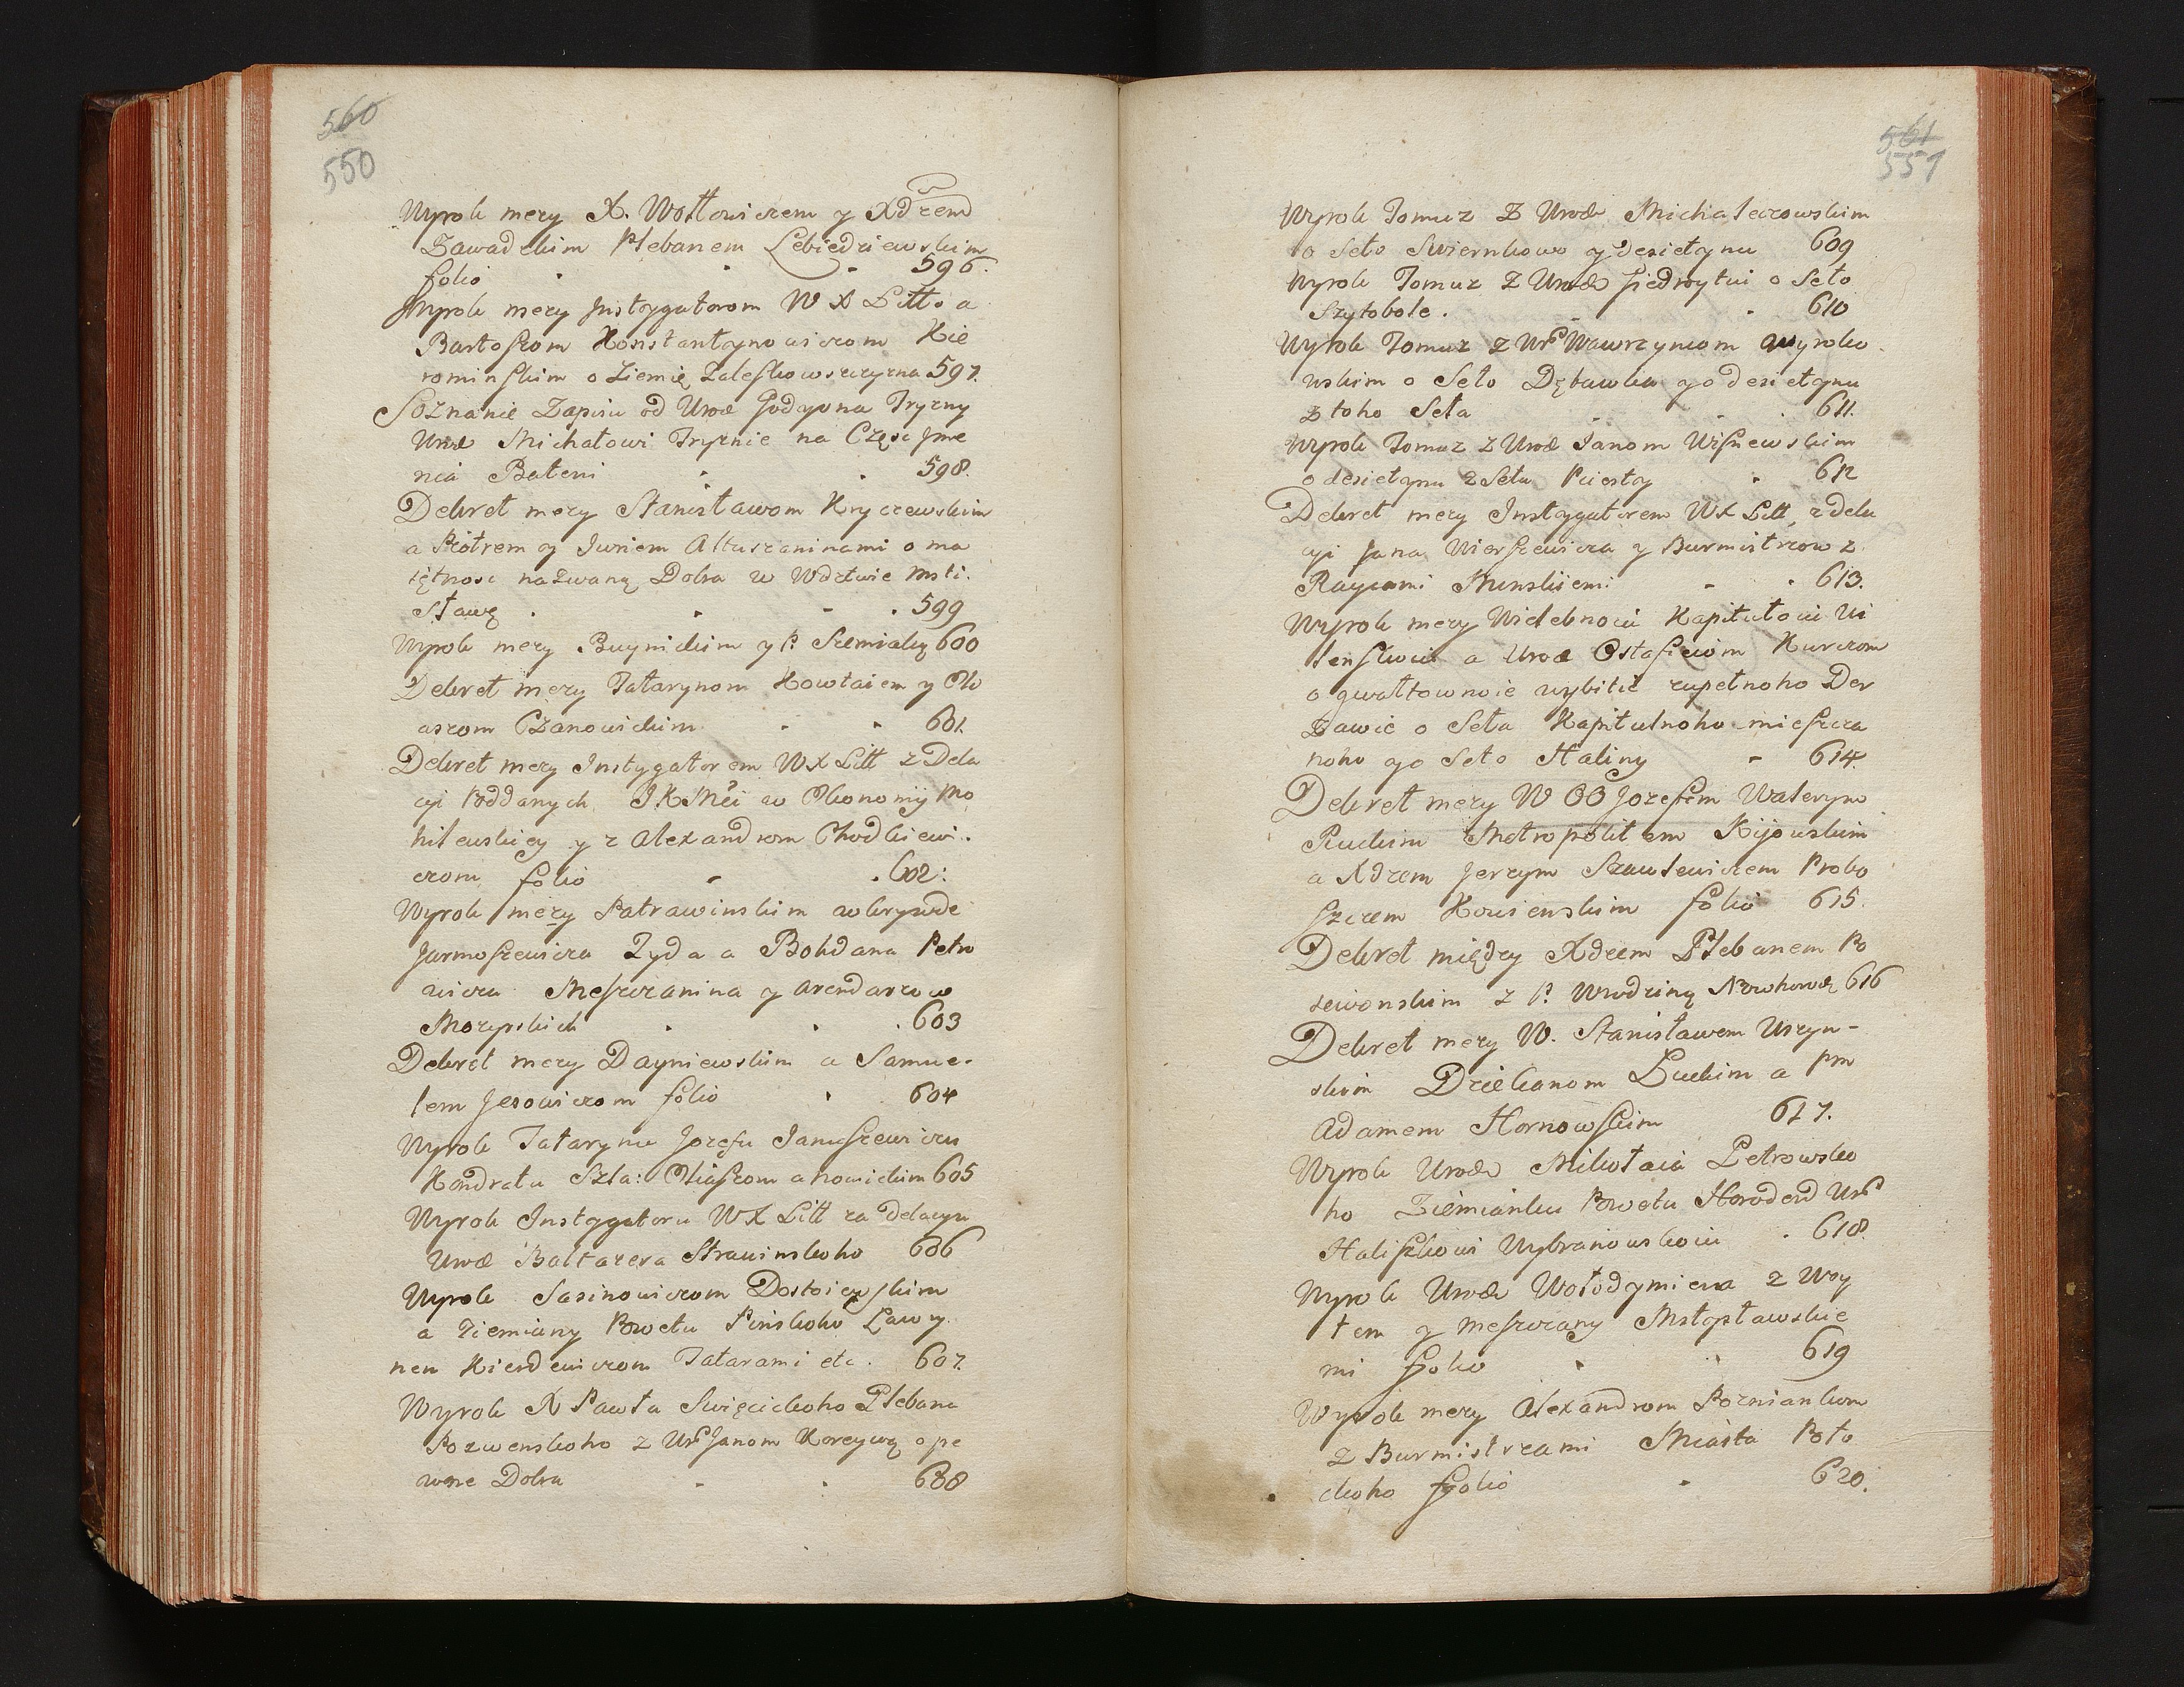 560
550
Wyrok mezy X. Wołłowiczem y Xdzem
Zawadzkim Plebanem Lebiedziewskim
folio 596.
Wyrok mezy Instygatorom W X Litto a
Bartoszom Konstantynowiczom Hie
rominskim o Ziemię Zaleskowszczyzna 597.
Soznanie Zapisu od Urod Godyona Tryzny
Urod Michałowi Tryznie na Częsc Jme
nia Bateni 598.
Dekret mezy Stanisławom Kryczewskim
a Piotrem y Juriem Ałtuszaninami o ma
iętnosc nazwaną Dobra w Wdztwie Msti.
sławę 599
Wyrok mezy Buynickim y P. Szemialą 600
Dekret mezy Tatarynom Kowłaiem y Ob
aszom Czanowickim 601.
Dekret mezy Instygatorem WX Litt z Dela
cyi Poddanych JKMci w Okonomij Mo
hilewskiey y z Alexandrom Chodkiewi.
czom folio 602:
Wyrok mezy Patrawinskim w krywde
Jarmoszewicza Żyda a Bohdana Petro
wicza Meszczanina y arendarzow
Mozyrskich 603
Dekret mezy Dayniewskim a Samue.
lem Jesowiczom folio 604
Wyrok Tatarynu Jozefu Januszewiczu
Kondratu Szla: Obiaszom anowickim 605
Wyrok Instygatoru WX Litt za delacyu
Urod Baltazera Strawinskoho 606
Wyrok Sasinowiczom Dostoiewskim
a Ziemiany Powetu Pinskoho Ławry
nen Kierdewiczom Tatarami etc. 607.
Wyrok X Pawła Swięcickoho Plebana
Pozwenskoho z Urd Janom Koreywą o pe
wne Dobra 608
561
551
Wyrok Tomuz Z Urod Michałeczowskim
o Seło Swiernkowo y desietynu 609
Wyrok Tomuz Z Urod Giedroytui o Seło
Szytobole. 610
Wyrok Tomuz z Urd Wawrzyncom Wyroko
wskim o Seło Dębawka y o desietynu
z toho Seła 611.
Wyrok Tomuz z Urod Janom Wiszniewskim
o desietynu z Seła Piersty 612
Dekret mezy Instygatorem WX Litt, z dela
cyi Jana Wierszewicza y Burmistrzow z
Raycami Minskiemi 613.
Wyrok mezy Widebnoiu Kapitułoiu Wi
lenskoiu a Urod Ostafiewm Kurczom
o gwałtownoie wybitie zupełnoho Der
żawie o Seła Kapitulnoho mieszcza
noho y o Seło Haliny 614.
Dekret mezy W OO Jozefem Waleryno
Ruckim Metropolitem Kijowskim
a Xdzem Jerzym Szawłewiczem Probo
szczem Kowienskim folio 615.
Dekret między Xdzem Plebanem Po
zewonskim z P. Wrodziną Nowhorodz 616
Dekret mezy W. Stanisławem Uszyn-
skim Dziekanom Łuckim a Pm
Adamem Hornowskim 617.
Wyrok Urod Mikołaia Petrowsko
ho Ziemianku Powetu Horodend Urd
Haliszkoui Wybranowskoiu 618.
Wyrok Urod Wołodymiera z Woy
tem y Meszczany Mstysławskie
mi folio 619
Wyrok mezy Alexandrom Pozniankom
z Burmistrzami Miasta Poło
ckoho folio 620.